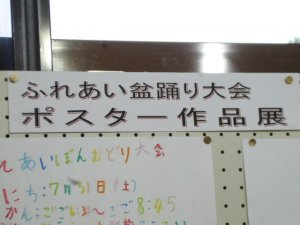 ふれあい盆踊り大会
ポスター作品展
あいぼんおどり大会
にち:7月31日(土)
かん:ごご
ごご8:45